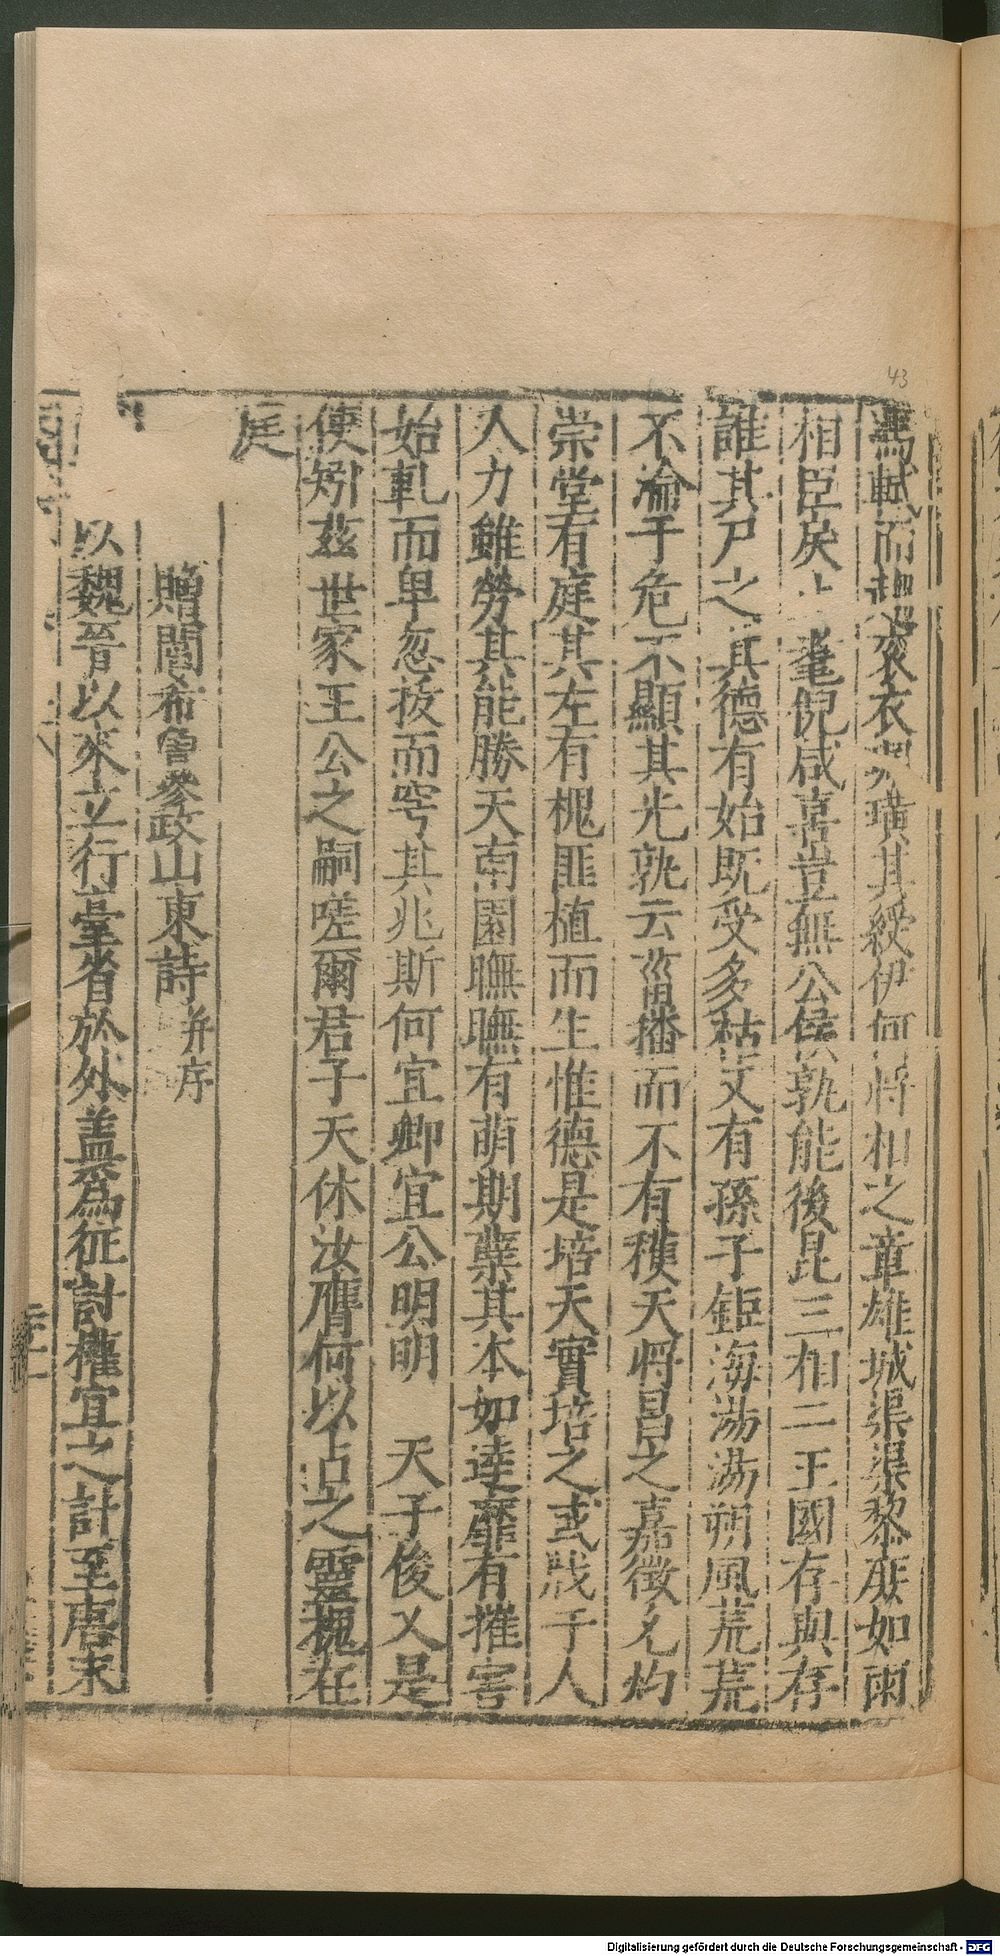 43
馮軾而趨衮衣璜其綬伊何將相之章雄城渠渠黎庶如雨
相臣戾止耄倪咸喜豈無公侯孰能後昆三相二王國存與存
誰其尸之其德有始既受多祜又有孫子鉅海湯湯朔風荒荒
不淪于危不顯其光孰云菑播而不有穫天將昌之嘉徵允灼
崇堂有庭其左有槐匪植而生惟德是培天實培之或戕于人
人力雖勞其能勝天南園膴膴有萌期蘖其本如逵靡有摧害
始軋而卑忽拔而穹其兆斯何宜卿宜公明明　天子俊乂是
使矧茲世家王公之嗣嗟爾君子天休汝膺何以占之靈槐在
庭
贈閭布魯參政山東詩并序
以魏晉以來立行臺省於外蓋為征討權宜之計至唐末
Digitalisierung gefördert durch die Deutsche Forschungsgemeinschaft - DFG